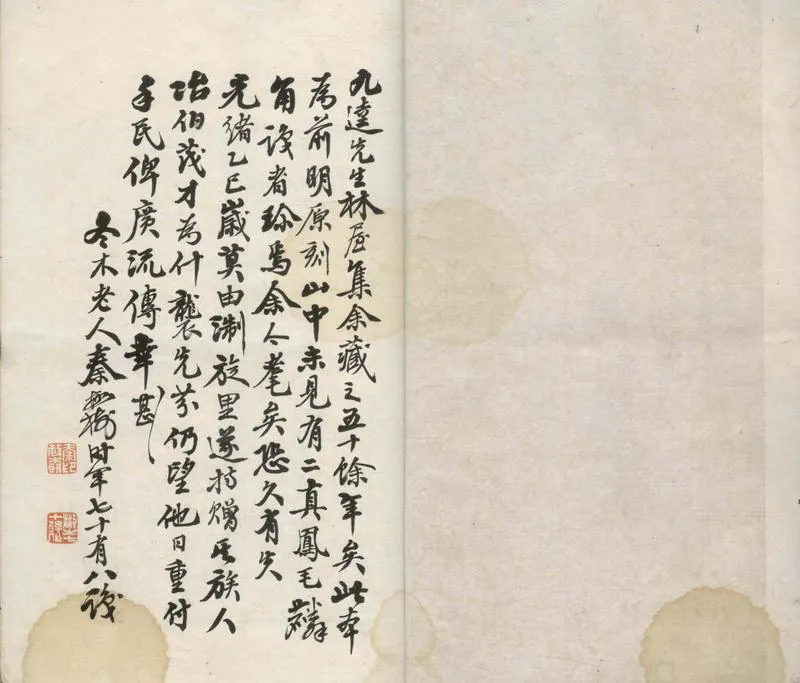 九逵先生林屋集余藏之五十餘年矣此本
為前明原刻山中未見有二真鳳毛麟
角議者珍焉余今耄矣恐久有失
光緒乙巳歲莫由淛旋里遂持贈其族人
冶伯茂才為什襲先芬仍望他日重付
手民俾廣流傳幸甚
冬木老人秦 時年七十有八識